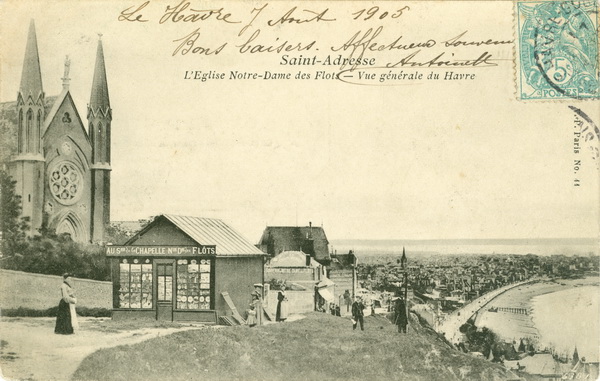 Le Havre 7 Août 1905
Bons baisers. Affectueux Souvenir
Antoinette
Saint-Adresse
L'Eglise Notre-Dame des Flots — Vue générale du Havre
POSTES
P. Paris No. 44
CHAPELLE Nre De des FLOTS